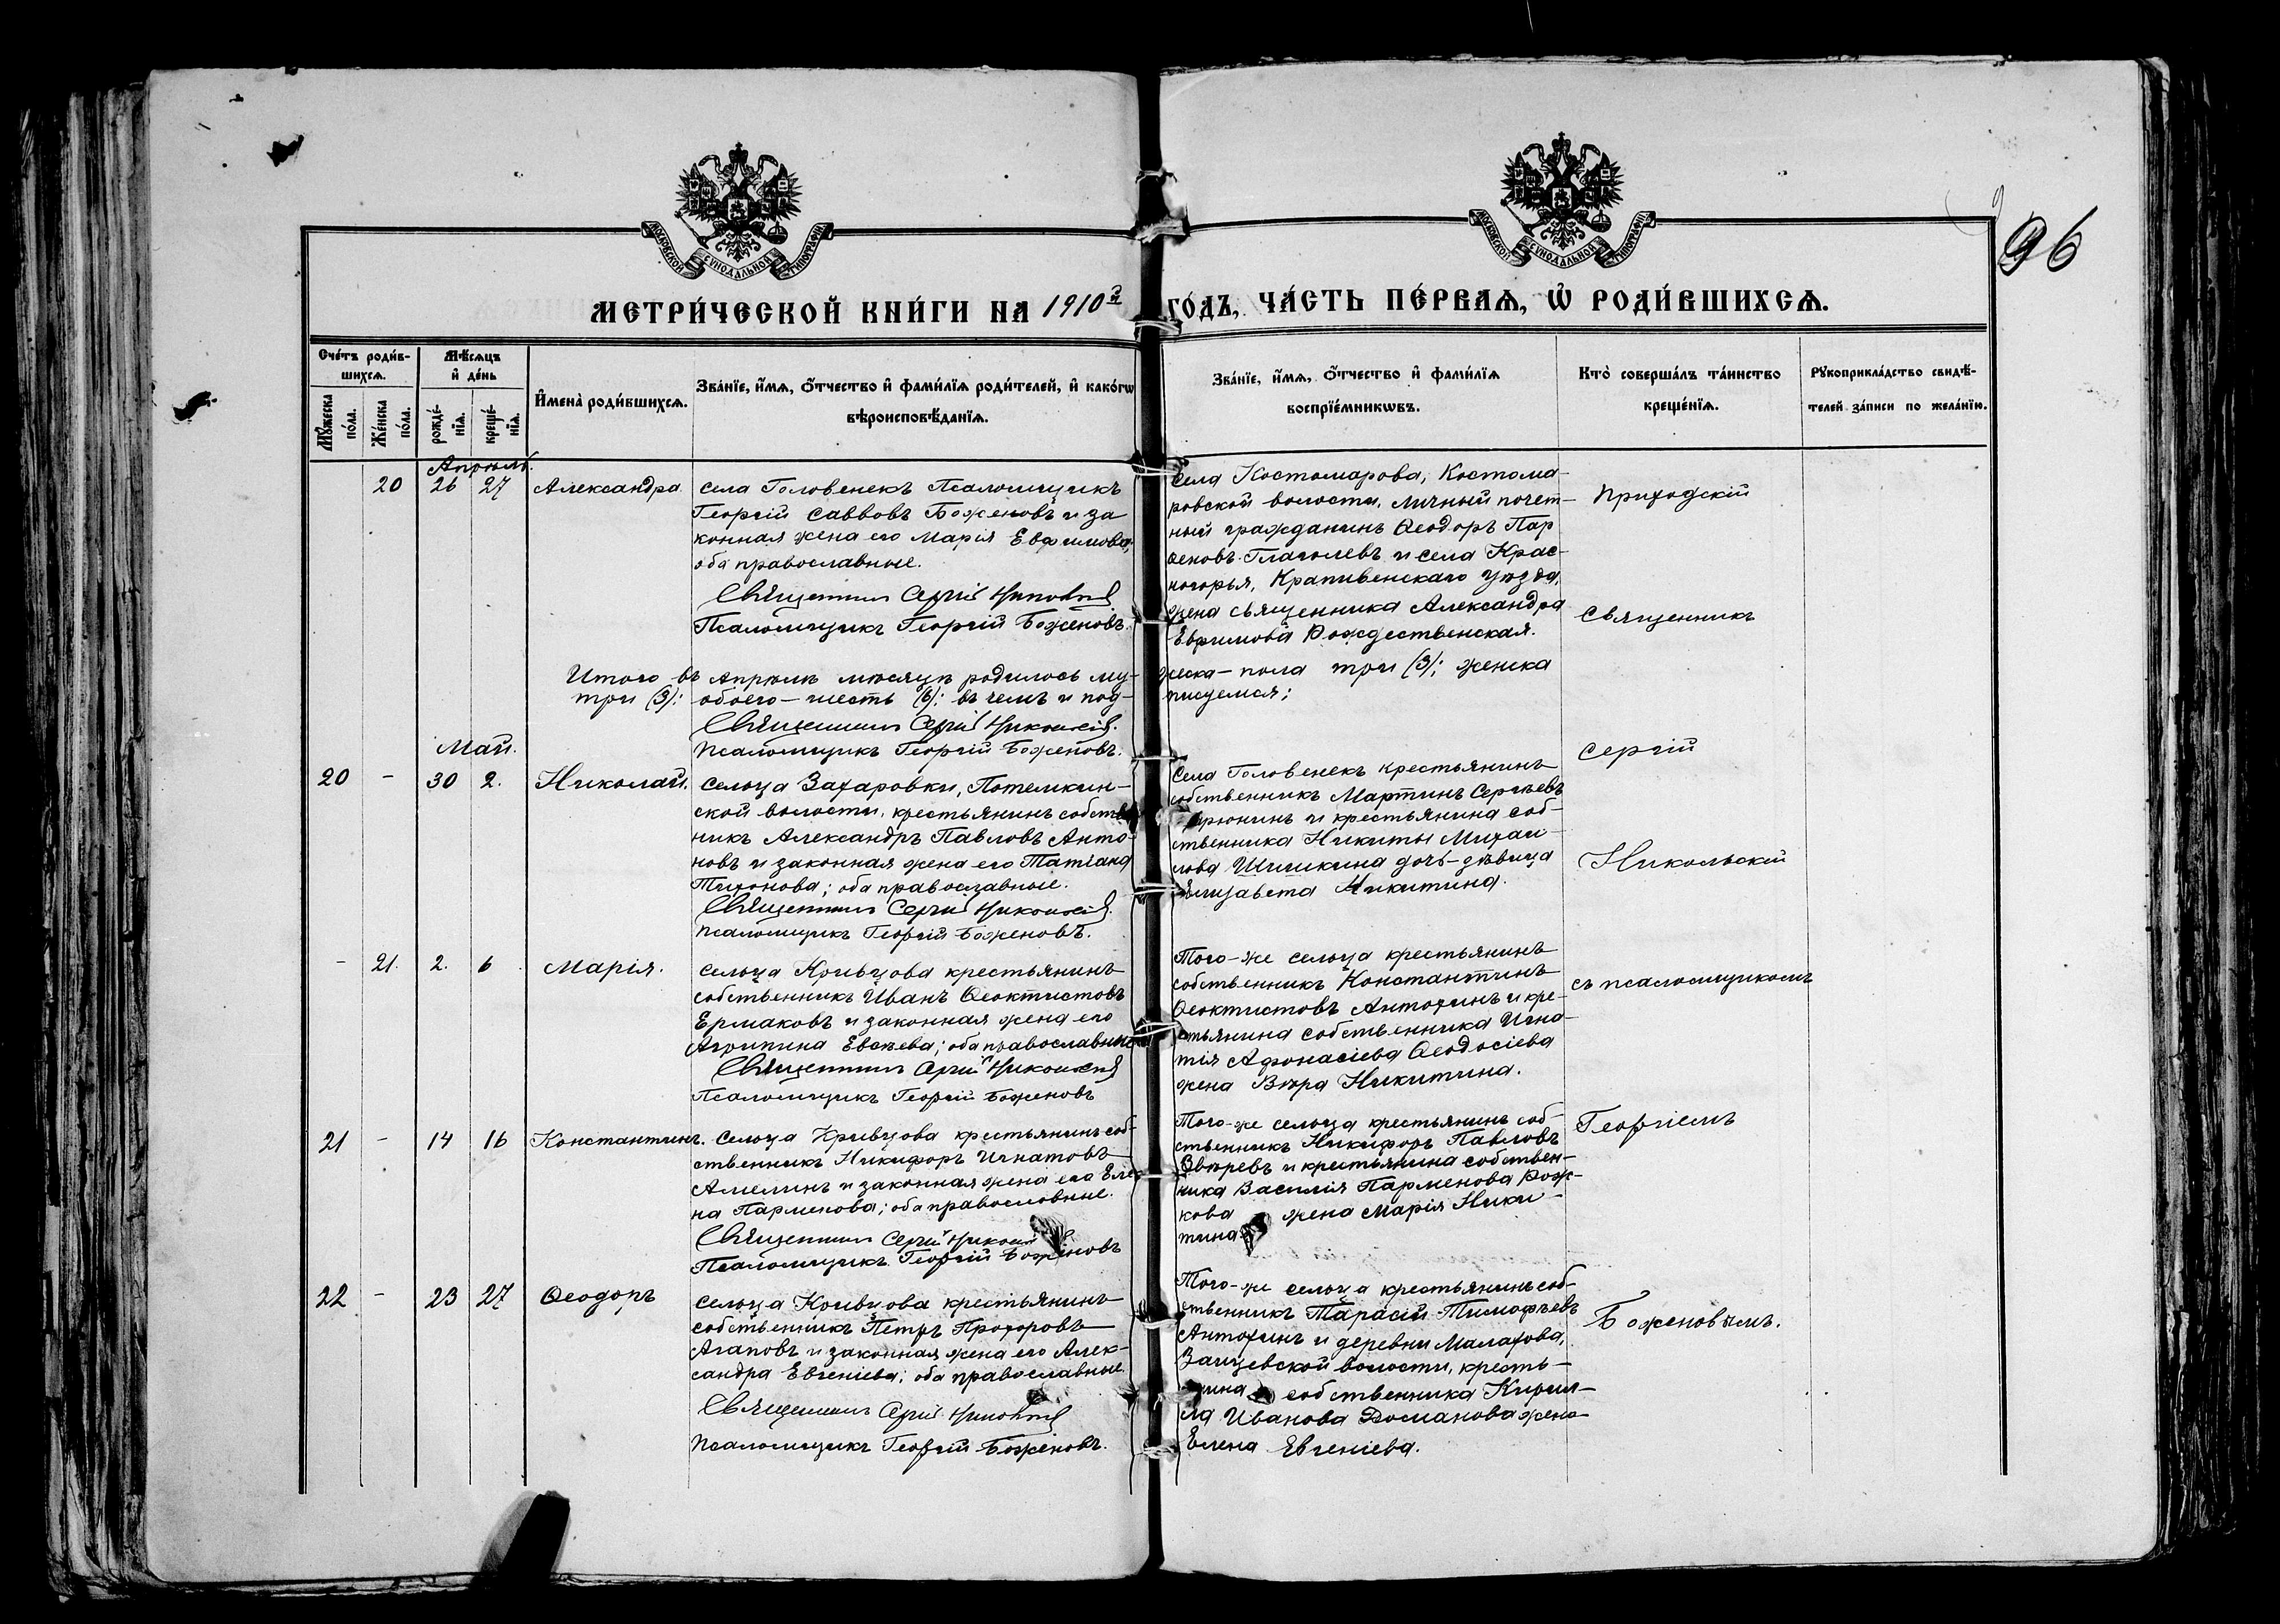 96
МЕТРИ́ЧЕСКОЙ КНИ́ГИ НА 1910й ГО́ДЪ, ЧА́СТЬ ПЕ́РВАѦ, Ѡ РОДИ́ВШИХСѦ.
Сче́тъ роди́в-
шихсѧ.
Мѣсяцъ
и де́нь
Мꙋжеска
по́ла.
Же́нска
по́ла.
рожде́-
нїѧ.
креще́-
нїѧ.
Имена̀ роди́вшихсѧ.
Зва́нїе, и́мѧ, о́тчество и фами́лїѧ роди́телей, и како́гѡ
вѣроисповѣданїѧ.
Зва́нїе, и́мѧ, о́тчество и фами́лїѧ
воспрїе́мникѡвъ.
Кто̀ соверша́лъ та́инство
креще́нїѧ.
Рꙋкоприкла́дство свидѣ-
телей за́писи по жела́нїю.
Апрѣль.
20 26 27 Александра
села Головенекъ Псаломщикъ
Георгій Саввовъ Боженовъ и за
конная жена его Марія Евфимова;
оба православные.
Священникъ Сергій Никольскій
Псаломщикъ Георгій Боженовъ.
Села Костомарова, Костома-
ровской волости, личный почет-
ный гражданинъ Ѳеодоръ Пар
ѳеновъ Глаголевъ и села Крас-
ногорья, Крапивенскаго уѣзда,
жена священника Александра
Евфимова Рождественская.
Итого въ Апрѣлѣ мѣсяцѣ родилось му- жеска-пола три (3); женска
три (3); обоего-шесть (6); въ чемъ и под- писуемся;
Священникъ Сергій Никольскій.
Псаломщикъ Георгій Боженовъ.
Май.
20 - 30 2. Николай.
Сельца Захаровки, Потемкин-
ской волости, крестьянинъ собствен
никъ Александръ Павловъ Анто-
новъ и законная жена его Татіана
Тихонова; оба православные.
Священникъ Сергій Никольскій.
Псаломщикъ Георгій Боженовъ.
Села Головенекъ крестьянинъ
собственникъ Мартинъ Сергѣевъ
и крестьянина соб-
ственника Никиты Михаи-
лова Шишкина дочь-дѣвица
Елизавета Никитина.
- 21. 2. 6 Марія.
Сельца Кривцова крестьянинъ
собственникъ Иванъ Ѳеоктистовъ
Ермаковъ и законная жена его
Агрипина Евсѣева; оба православные
Священникъ Сергій Никольскій
Псаломщикъ Георгій Боженовъ
Того-же сельца крестьянинъ
собственникъ Константинъ
Ѳеоктистовъ Антохинъ и кре-
стьянина собственника Игна-
тія Афонасіева Ѳеодосіева
жена Вѣра Никитина.
21 - 14 16 Константинъ.
Сельца Кривцова крестьянинъ соб-
ственникъ Никифоръ Игнатовъ
Амелинъ и законная жена его Еле
на Парменова; оба православные.
Священникъ Сергій
Псаломщикъ Георгій Боженовъ
Того-же сельца крестьянинъ соб-
ственникъ Никифоръ Павловъ
Звѣревъ и крестьянина собствен-
ника Василія Парменова Рож-
кова жена Марія Ники-
тина
22 - 23 27 Ѳеодоръ
Сельца Кривцова крестьянинъ
собственникъ Петръ Прохоровъ
Агаповъ и законная жена его Алек-
сандра Евгеніева; оба православные
Священникъ Сергій Никольскій
Псаломщикъ Георгій Боженовъ.
Того-же сельца крестьянинъ соб-
ственникъ Тарасій Тимофѣевъ
Антохинъ и деревни Малахова,
Зайцевской волости, кресть-
янина собственника Кирил-
ла Иванова Романова жена
Елена Евгеніева.
Приходскій
Священникъ
Сергій
Никольскій
съ псаломщикомъ
Георгіемъ
Боженовымъ.